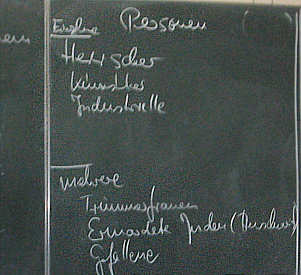 Einzelne Personen ( )
Herrscher
Künstler
Industrielle
mehrere
Trümmerfrauen
Ermordete Juden (
Gefallene